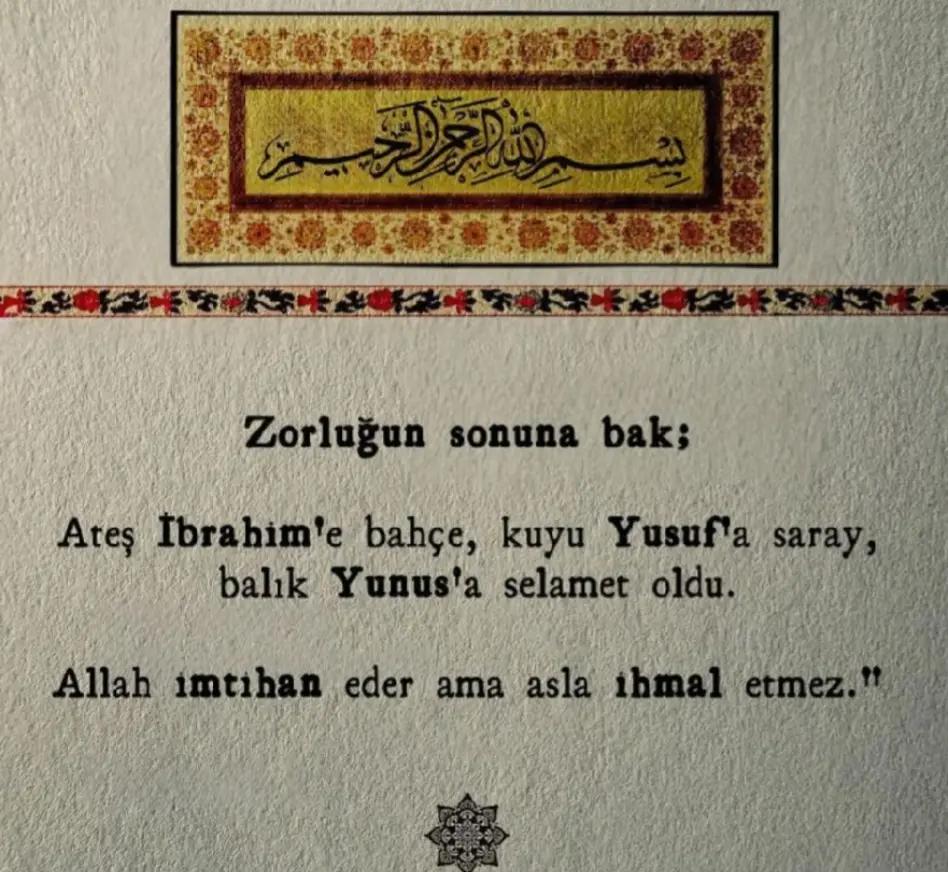 بِسْمِ اللهِ الرَّحْمٰنِ الرَّحِيمِ
Zorluğun sonuna bak;
Ateş İbrahim'e bahçe, kuyu Yusuf'a saray,
balık Yunus'a selamet oldu.
Allah imtihan eder ama asla ihmal etmez."